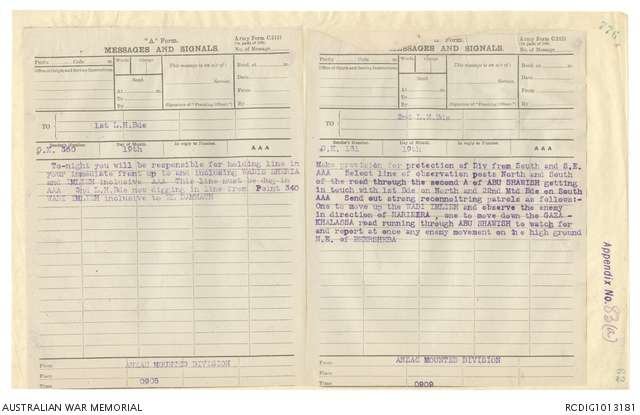 "A." Form.
Army Form C.2121
MESSAGES AND SIGNALS.
No. of Message
Prefix Code m.
Office of Origin and Service Instructions.
Words
Charge
Sent
At m.
To
By
This message is on a/c of:
Service.
(Signature of "Franking Officer")
Recd. at m.
Date
From
By
TO
1st L.H.Bde
Sender's Number.
Day of Month
In reply to Number.
AAA
19th
To-night you will be responsible for holding line in
your immediate front up to and including WADIS SHERIA
and IMLEIH inclusive AAA This line must be dug-in
AAA 3rd L.H.Bde now digging in line from Point 340
WADI IMLEIH inclusive to
From
ANZAC MOUNTED DIVISION
Place
Time
0905
Army Form C.2121
MESSAGES AND SIGNALS.
No. of Message
Prefix Code m.
Office of Origin and Service Instructions.
Words
Charge
Sent
At m.
To
By
This message is on a/c of:
Service.
(Signature of "Franking Officer")
Recd. at m.
Date
From
By
TO
2nd L.H.Bde
Sender's Number.
Day of Month
In reply to Number.
AAA
19th
Make provision for protection of Div from South and S.E.
AAA Select line of observation posts North and South
of the road through the second A of ABU SHAWISH getting
in touch with 1st Bde on North and 22nd Mtd Bde on South
AAA Send out strong reconnoitring patrols as follows:-
One to move up the WADI IMLEIH and observe the enemy
in direction of HAREIRA, one to move down the GAZA -
KHALASSA road running through ABU SHAWISH to watch for
and report at once any enemy movement on the high ground
N.E. of BEERSHEBA
From
ANZAC MOUNTED DIVISION
Place
Time
0909
776
Appendix No. 83(a)
AUSTRALIAN WAR MEMORIAL
RCDIG1013181